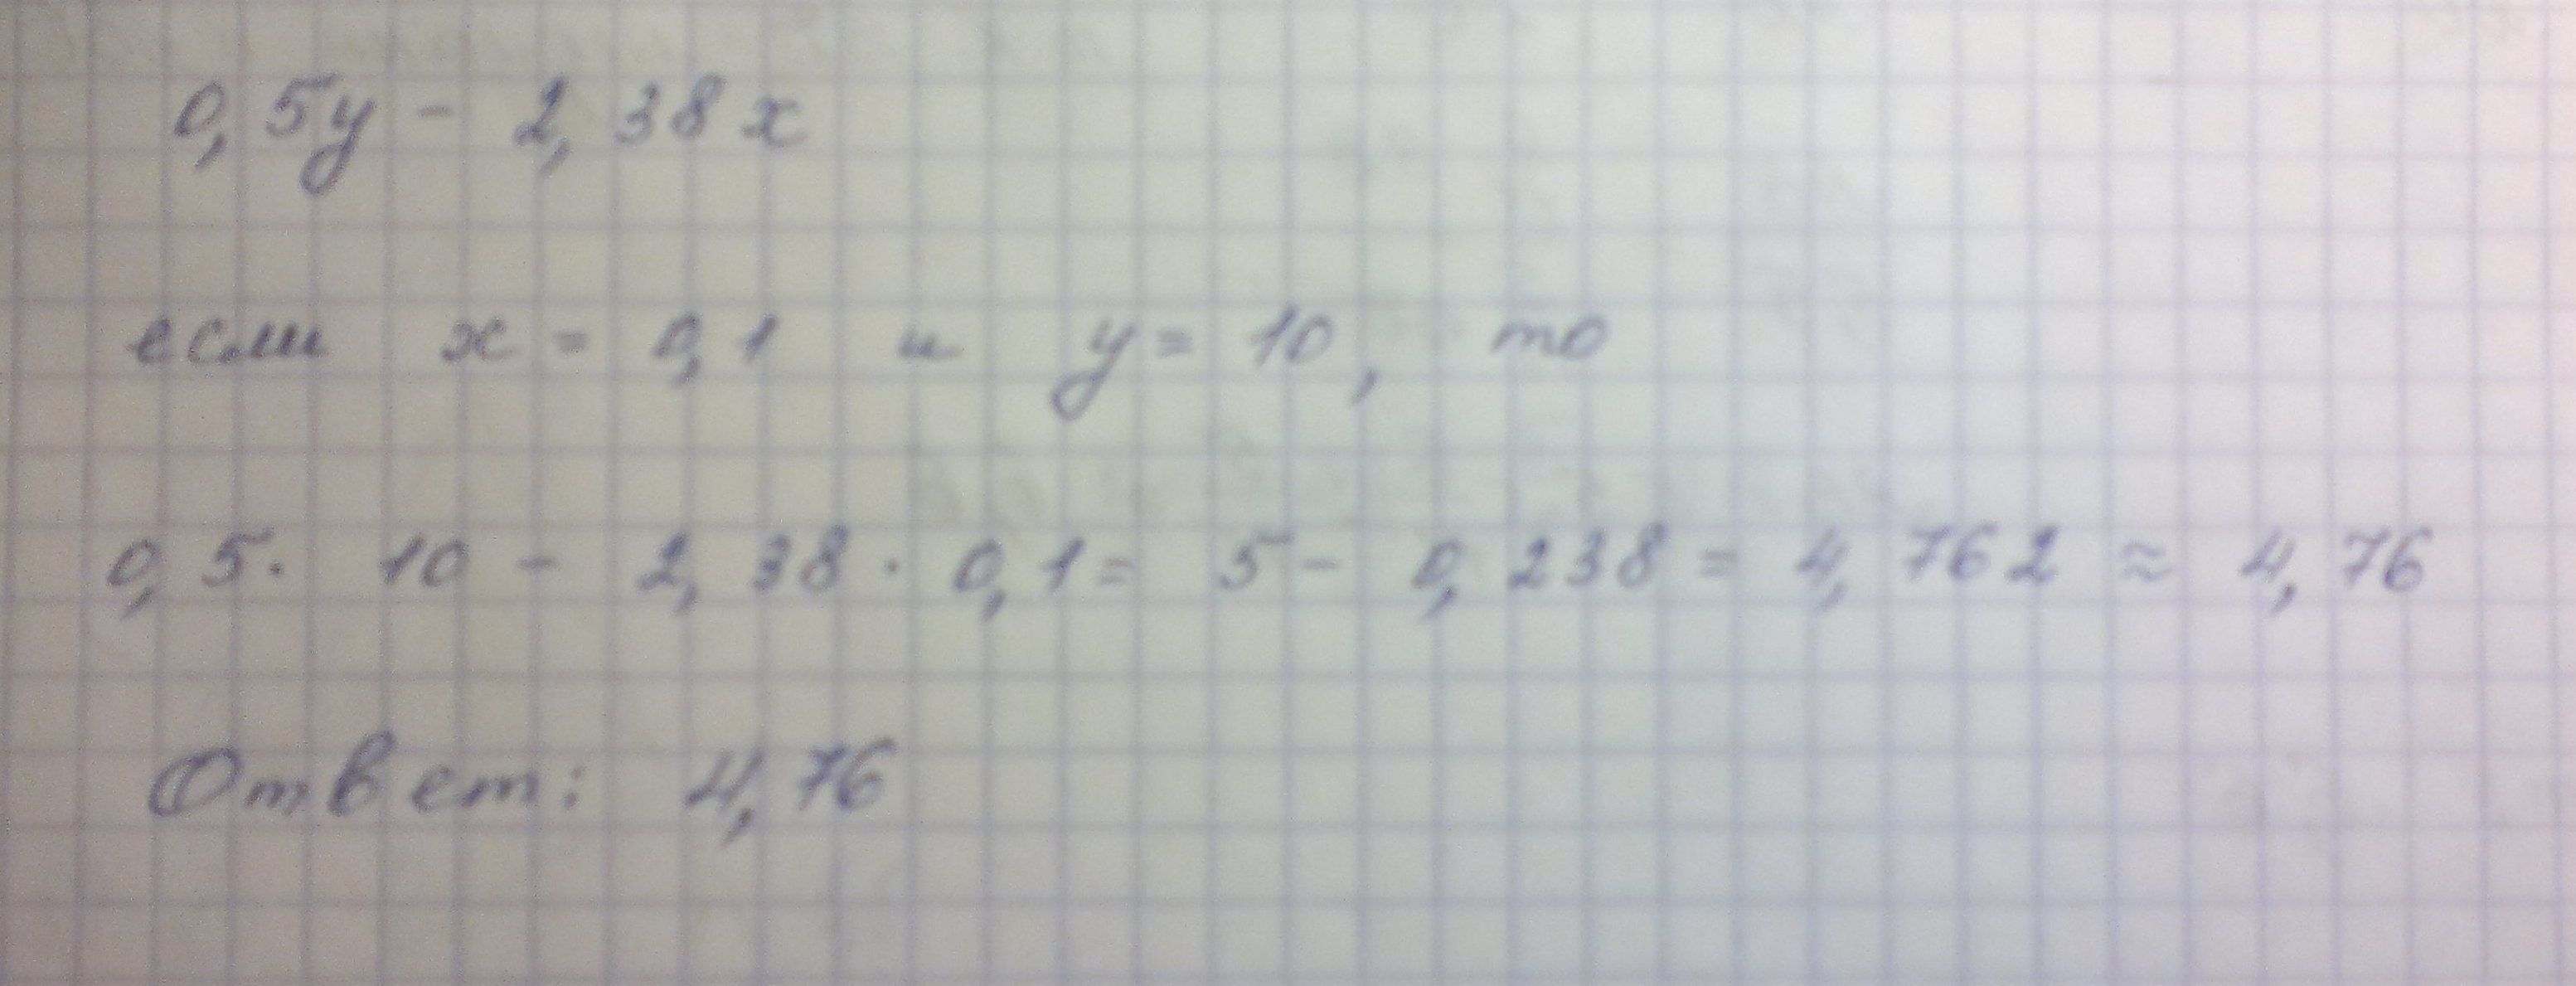 0,5y - 2,38x
если x = 0,1 и y = 10, то
0,5 · 10 - 2,38 · 0,1 = 5 - 0,238 = 4,762 ≈ 4,76
Ответ: 4,76